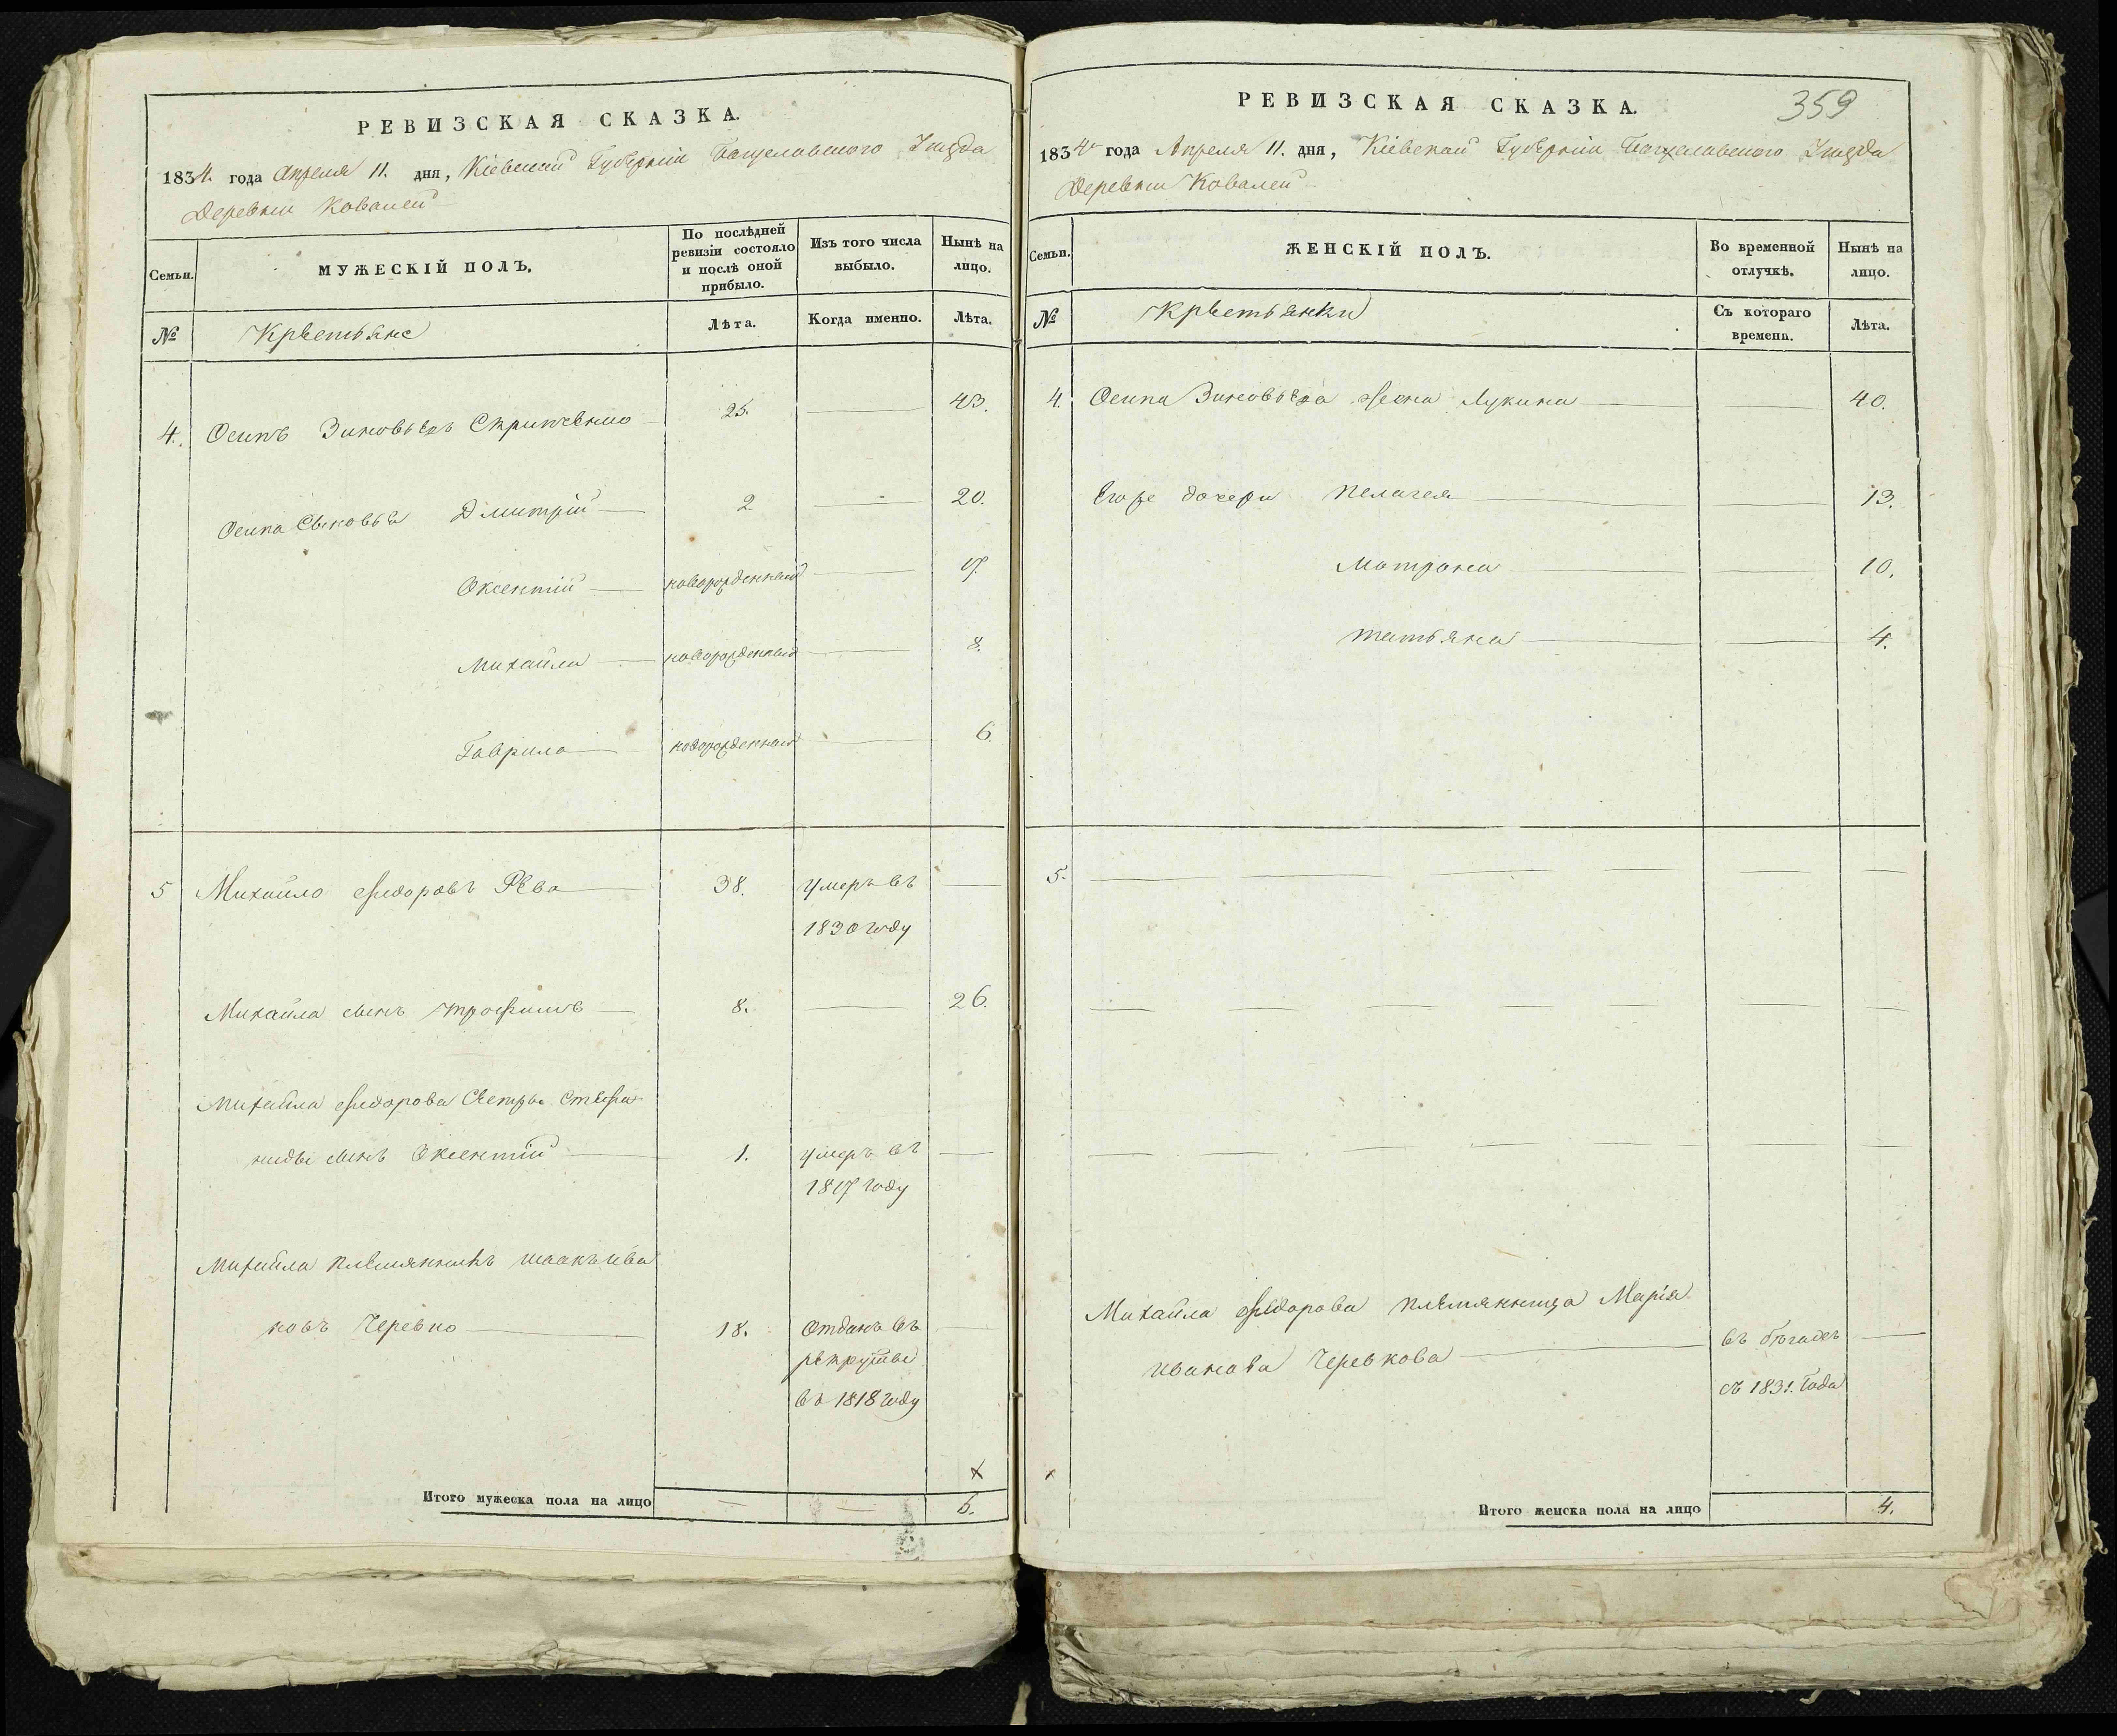 РЕВИЗСКАЯ СКАЗКА.
1834. года Апреля 11. дня, Кіевской Губерніи Богуславского Уезда
Деревни Ковалей
Семьи.
МУЖЕСКІЙ ПОЛЪ.
По послѣдней ревизіи состояло и послѣ оной прибыло.
Изъ того числа выбыло.
Нынѣ на лицо.
№
Крестьяне
Лѣта.
Когда именно.
Лѣта.
4. Осипъ Зиновьевъ 25. 43.
Осипа Сыновья Дмитрій 2 20.
Оксентій новорожденный 17.
Михайла новорожденный 8.
Гаврила новорожденный 6.
5 Михайло Федоровъ Рева 38. умеръ въ
1830 году
Михайла сынъ Трофимъ 8. 26.
Михайла Федорова Сестры Степа
ниды сынъ Оксентій 1. умеръ въ
1817 году
Михайла племянникъ Исаакъ Ива
новъ Черевко 18. Отданъ въ
рекруты
въ 1818 году
Итого мужеска пола на лицо 5.
РЕВИЗСКАЯ СКАЗКА.
359
1834 года Апреля 11. дня, Кіевской Губерніи Богуславского Уезда
Деревни Ковалей
Семьи.
ЖЕНСКІЙ ПОЛЪ.
Во временной отлучкѣ.
Нынѣ на лицо.
№
Крестьянки
Съ котораго времени.
Лѣта.
4. Осипа Зиновьева жена Лукина 40.
Его же дочери Пелагея 13.
Матрона 10.
Татьяна 4.
5.
Михайла Федорова племянница Марія
Иванова Черевкова въ бегахъ
съ 1831. Года
Итого женска пола на лицо 4.